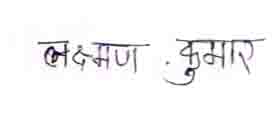 लक्ष्मण .कुमार